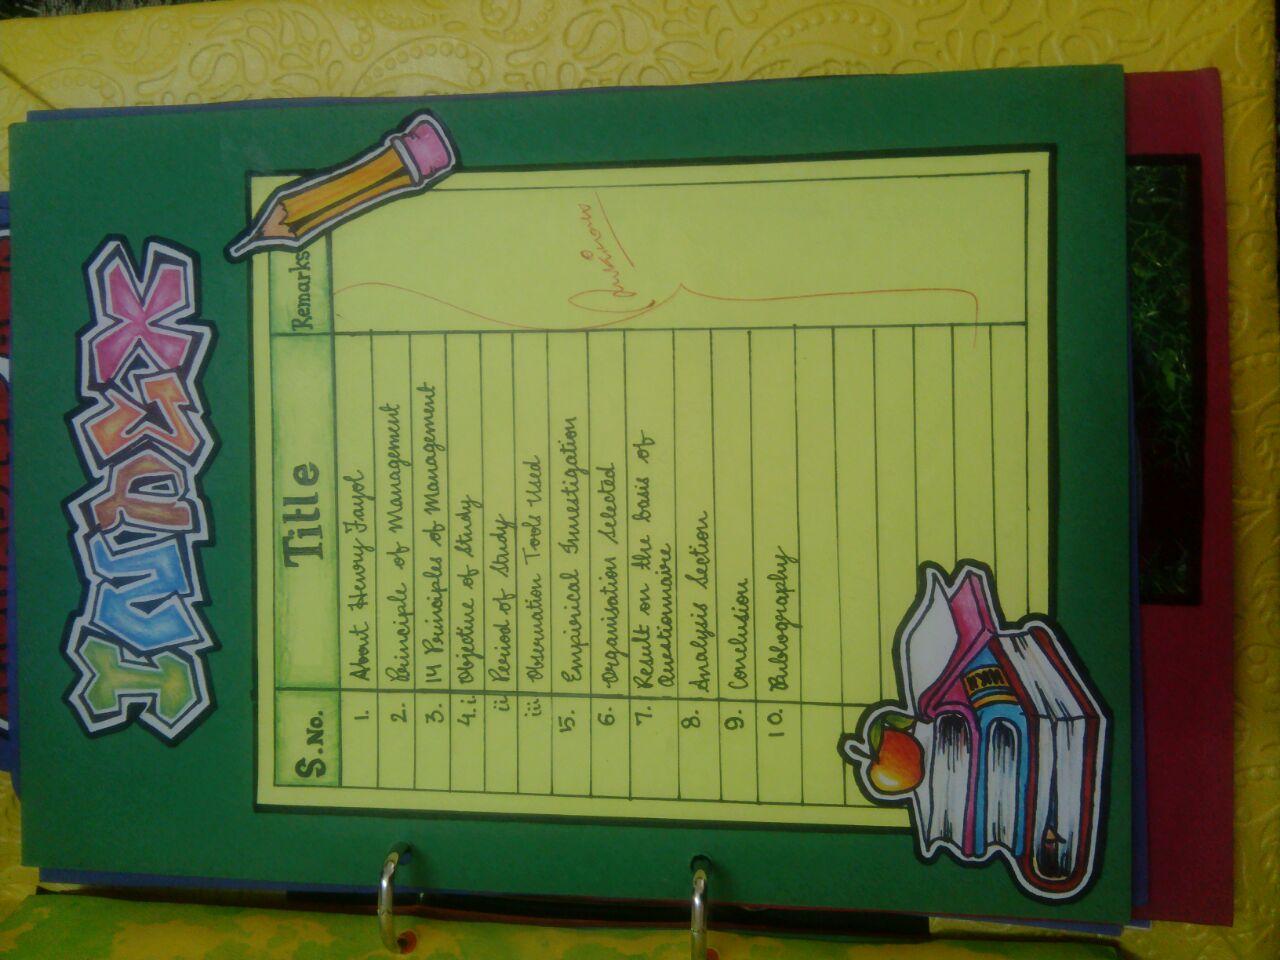 INDEX
S.No. Title Remarks
1. About Henry Fayol
2. Principle of Management
3. 14 Principles of Management
4.i Objective of Study
ii Period of Study
iii Observation Tools Used
5. Empirical Investigation
6. Organisation Selected
7. Result on the basis of
Questionnaire
8. Analysis Section
9. Conclusion
10. Bibliography